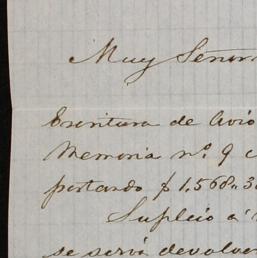 Muy Señor
Escritura de Avio
Memoria nº. 9 c
portando $ 1,568.. 3
Suplico á
se sirvá devolver